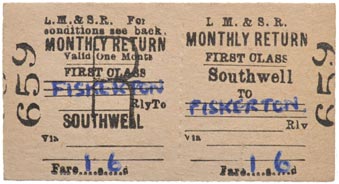 L. M. & S. R. For
conditions see back.
MONTHLY RETURN
Valid One Month
FIRST CLASS
FISKERTON
Rly To
SOUTHWELL
Via
Fare 1 s 6 d
659
L. M. & S. R.
MONTHLY RETURN
FIRST CLASS
Southwell
TO
FISKERTON
Rly
Via
Fare 1 s 6 d
659